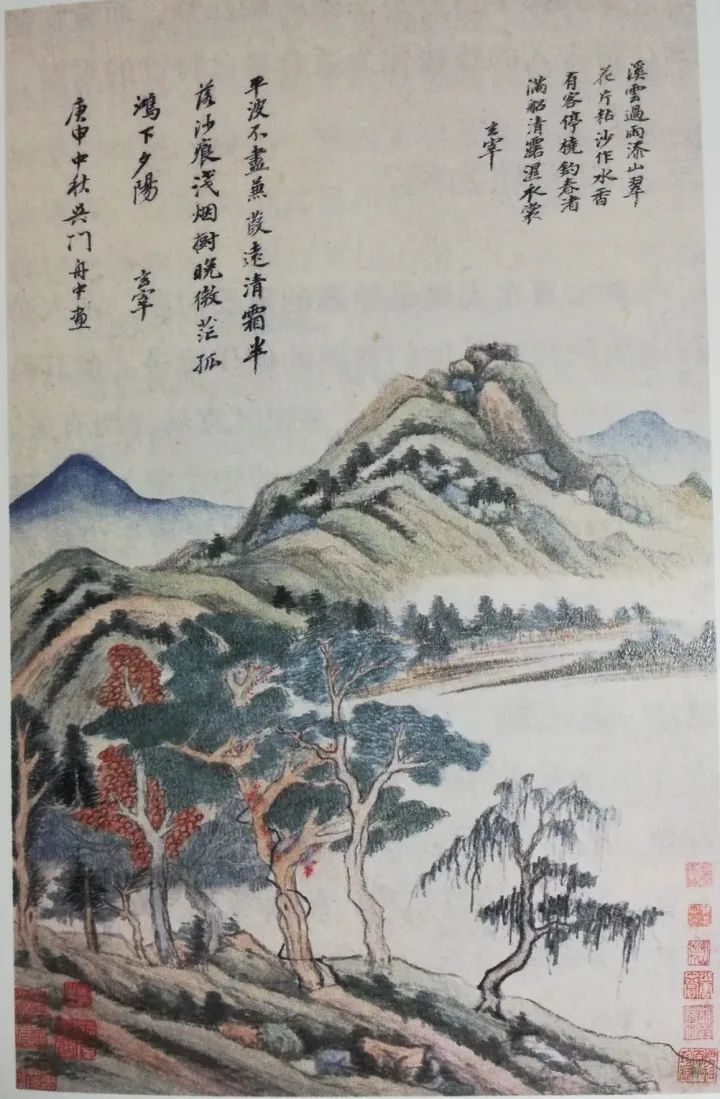 溪雲過雨添山翠
花片粘沙作水香
有客停橈釣春渚
滿船清露濕衣裳
玄宰
平波不盡蒹葭遠清霜半
落沙痕淺烟樹晚微茫孤
鴻下夕陽 玄宰
庚申中秋吴門舟中畫